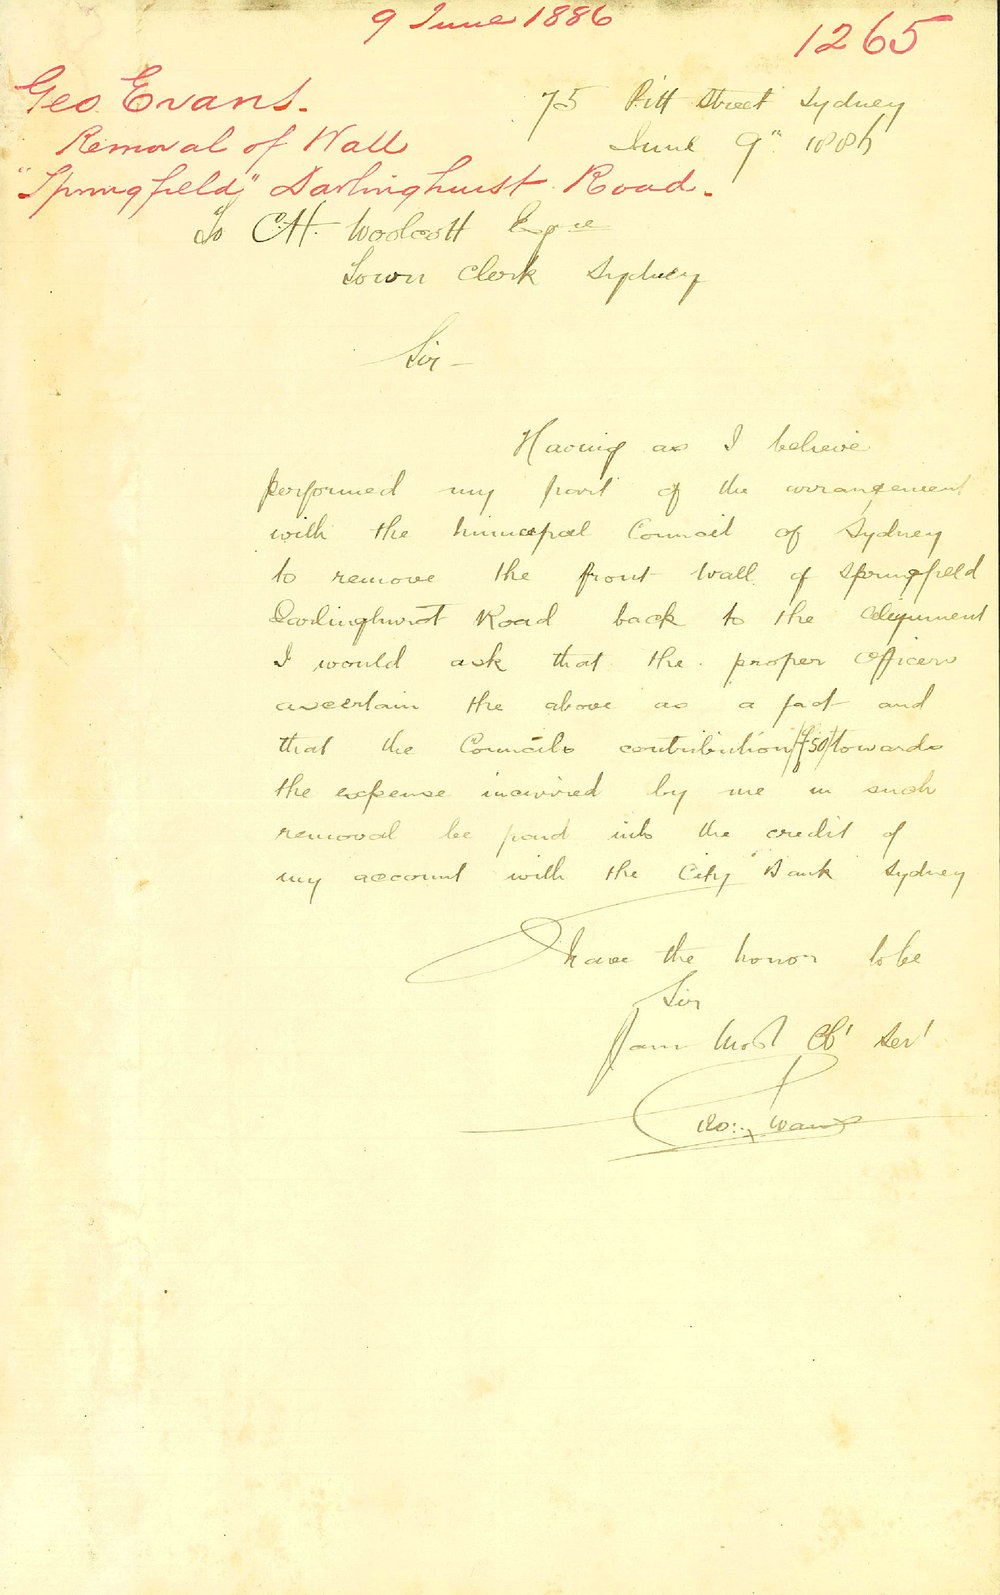 9 June 1886
1265
Geo. Evans.
Removal of Wall
"Springfield" Darlinghurst Road.
75 Pitt Street Sydney
June 9th 1886
To C.H. Woolcott Esqre
Town Clerk Sydney
Sir -
Having as I believe
performed my part of the arrangement
with the Municipal Council of Sydney
to remove the front Wall of Springfield
Darlinghurst Road back to the alignment
I would ask that the proper Officers
ascertain the above as a fact and
that the Councils contribution (£50) towards
the expense incurred by me in such
removal be paid into the credit of
my account with the City Bank Sydney
I have the honor to be
Sir
I am Most Ob' Ser'
Geo: Evans